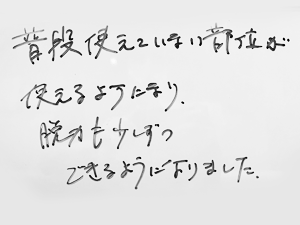 普段使えていない部位が
使えるようになり、
脱力も少しずつ
できるようになりました。